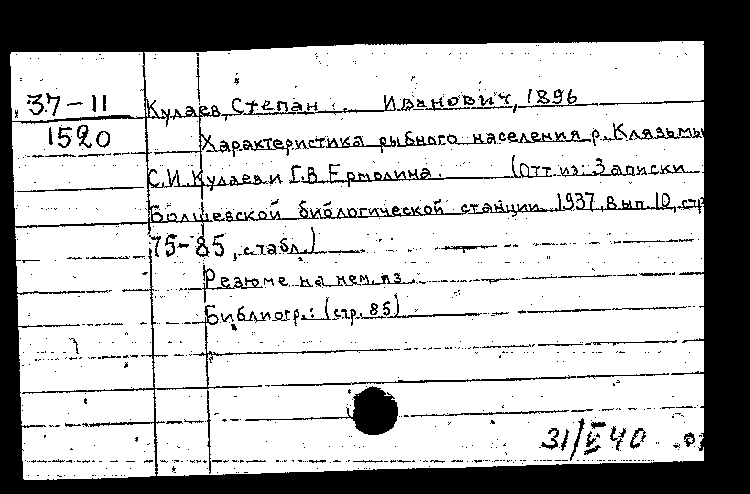 37-11
1520
Кулаев, Степан Иванович, 1896
Характеристика рыбного населения р. Клязьмы
С.И. Кулаев и Г.В. Ермолина. (Отт. из: Записки
Болшевской биологической станции 1937, Вып. 10, стр
75-85, с табл.)
Резюме на нем. яз.
Библиогр.: (стр. 85)
31/V 40